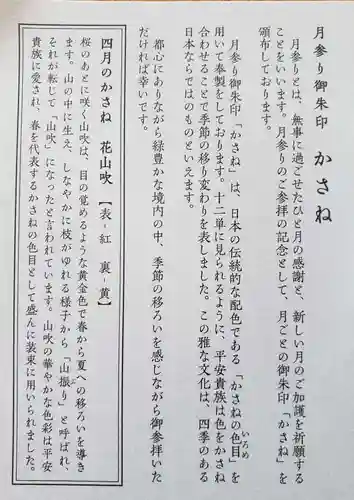 月参り御朱印　かさね
月参りとは、無事に過ごせたひと月の感謝と、新しい月のご加護を祈願する
ことをいいます。月参りのご参拝の記念として、月ごとの御朱印「かさね」を
頒布しております。
月参り御朱印「かさね」は、日本の伝統的な配色である「かさねの色目」を
いろめ
用いて奉製をしております。十二単に見られるように、平安貴族は色をかさね
合わせることで季節の移り変わりを表しました。この雅な文化は、四季のある
日本ならではのものといえます。
都心にありながら緑豊かな境内の中、季節の移ろいを感じながら御参拝いた
だければ幸いです。
四月のかさね　花山吹　【表-紅　裏-黄】
桜のあとに咲く山吹は、目の覚めるような黄金色で春から夏への移ろいを導き
ます。山の中に生え、しなやかに枝がゆれる様子から「山振り」と呼ばれ、
ぶ
それが転じて「山吹」になったと言われています。山吹の華やかな色彩は平安
貴族に愛され、春を代表するかさねの色目として盛んに装束に用いられました。